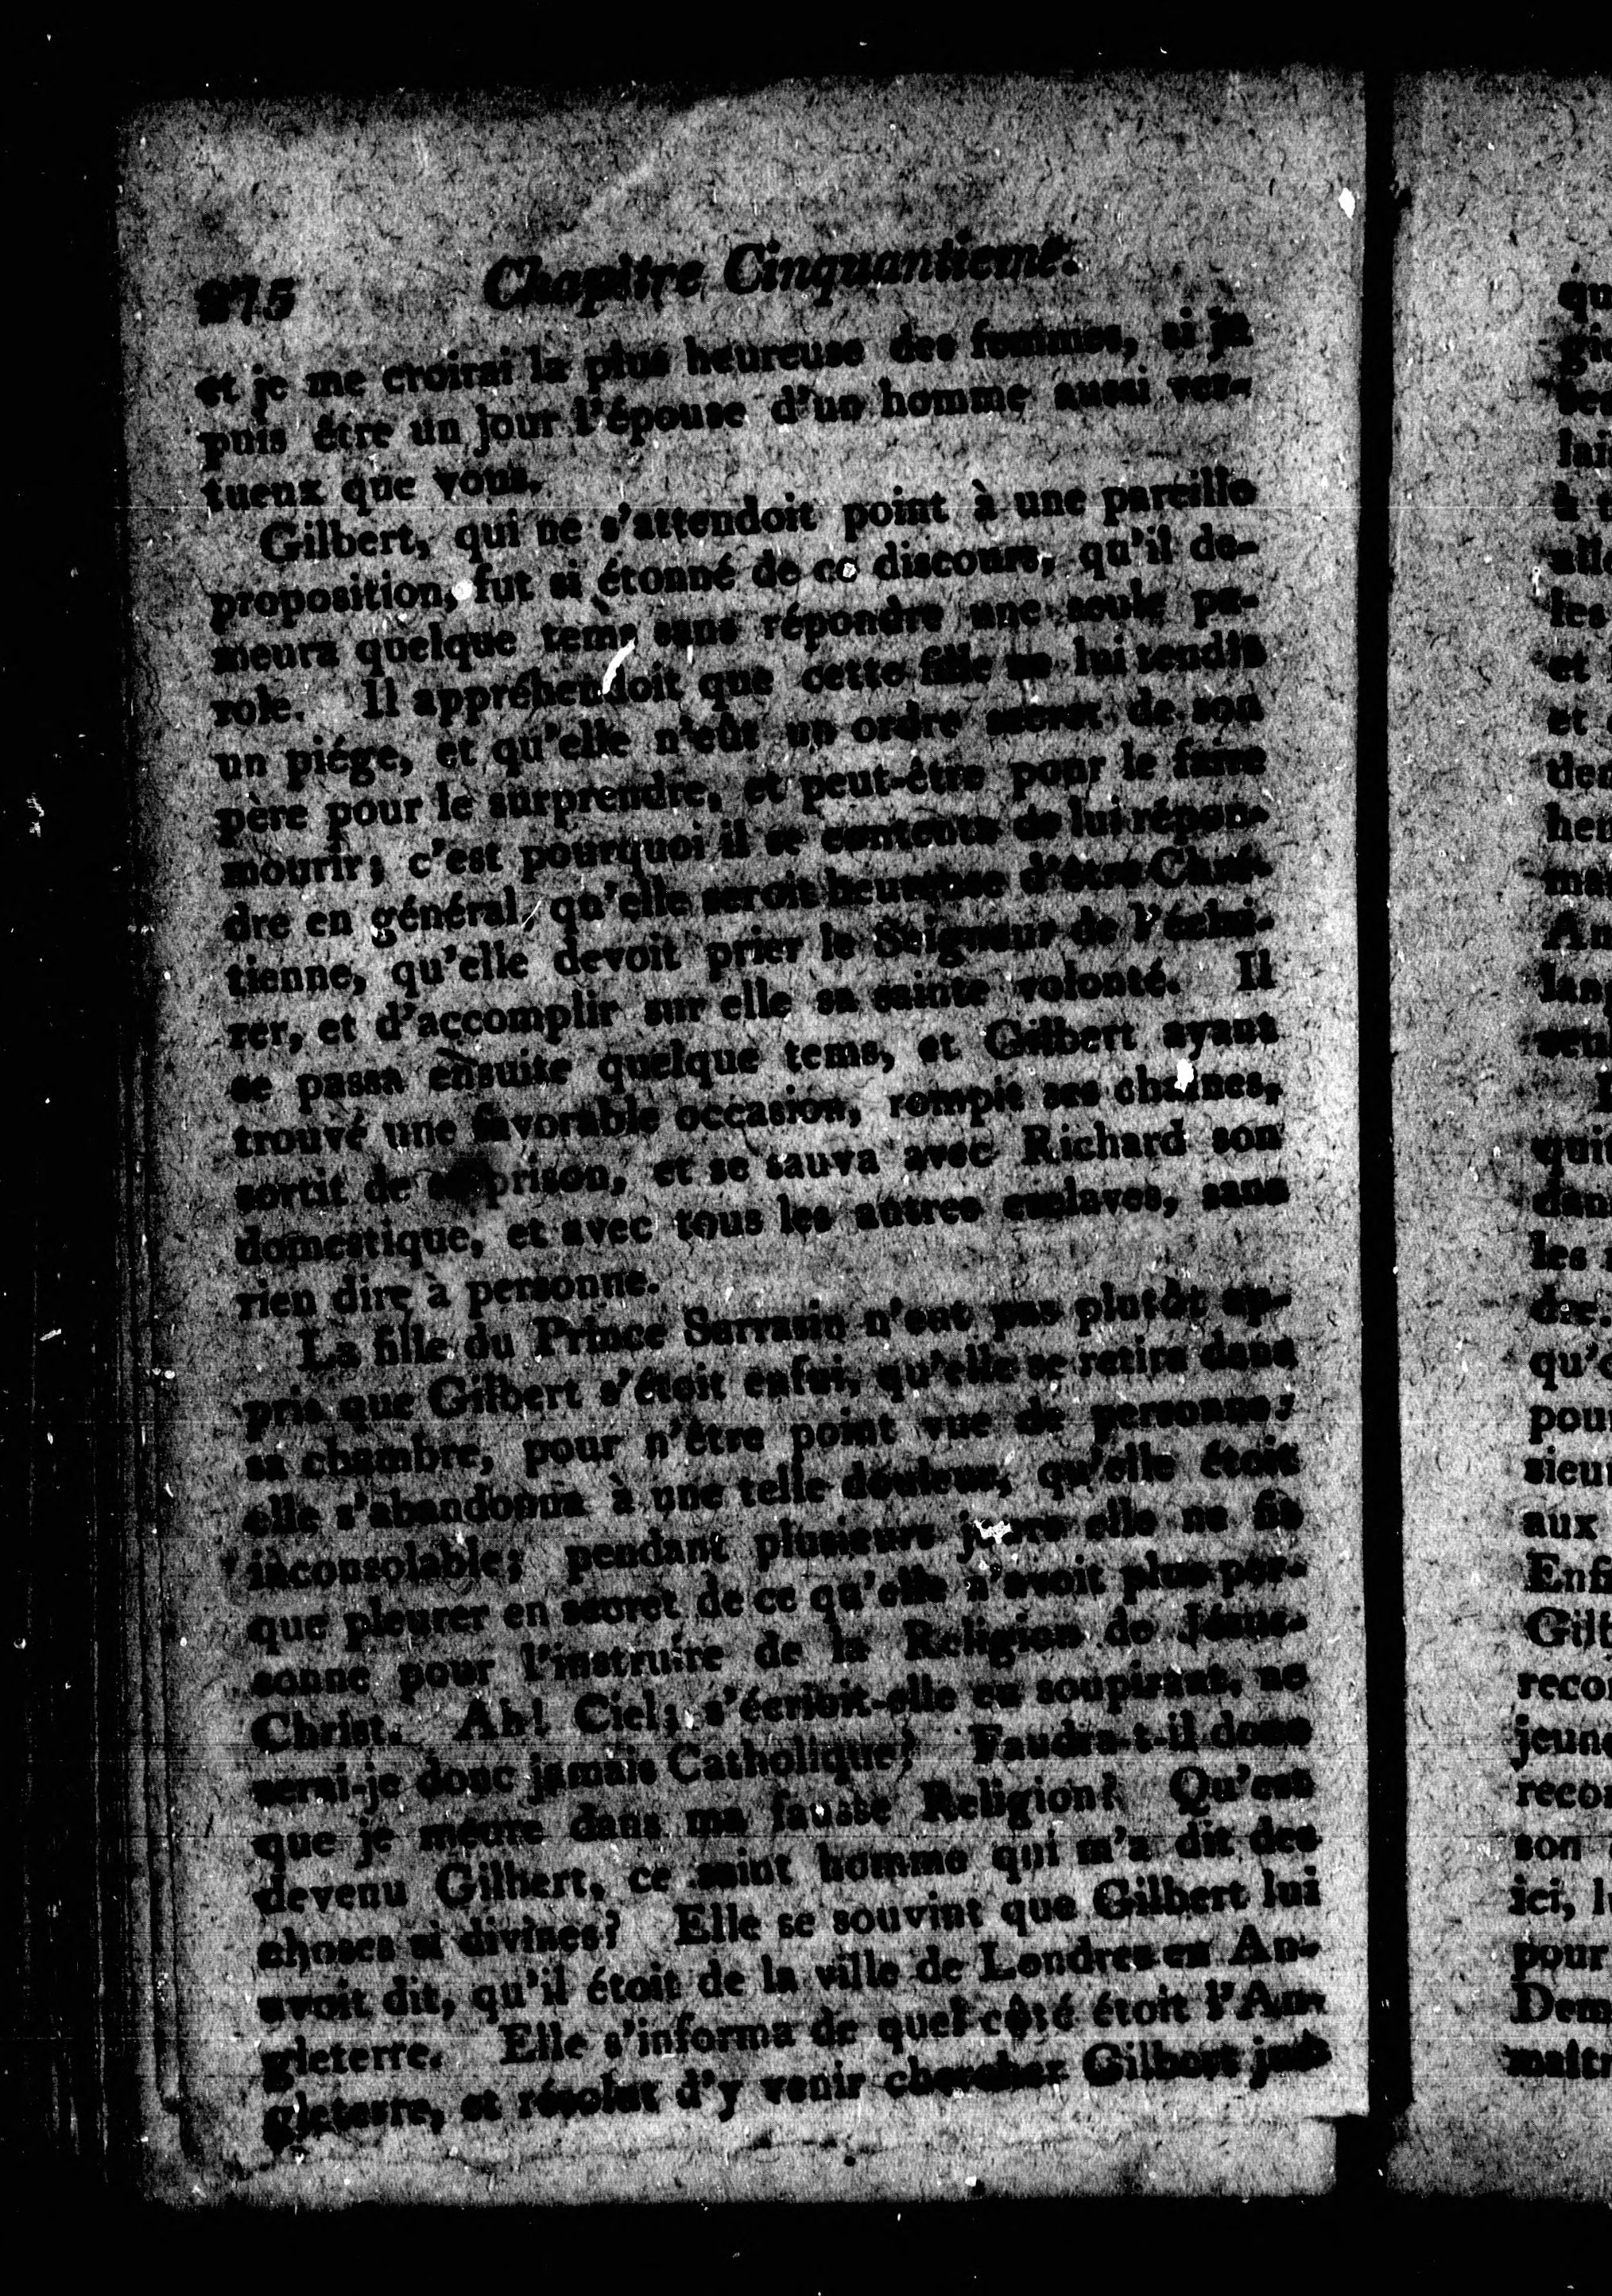 275 Chapitre Cinquantieme.
et je me croirai la plus heureuse des femmes, si je
puis être un jour l'épouse d'un homme aussi ver-
tueux que vous.
Gilbert, qui ne s'attendoit point à une pareille
proposition, fut si étonné de ce discours, qu'il de-
meura quelque tems sans répondre une seule pa-
role. Il appréhendoit que cette fille ne lui tendit
un piége, et qu'elle n'eût un ordre secret de son
père pour le surprendre, et peut-être pour le faire
mourir; c'est pourquoi il se contenta de lui répon-
dre en général, qu'elle seroit heureuse d'être Chré-
tienne, qu'elle devoit prier le Seigneur de l'éclai-
rer, et d'accomplir sur elle sa sainte volonté. Il
se passa ensuite quelque tems, et Gilbert ayant
trouvé une favorable occasion, rompit ses chaînes,
sortit de sa prison, et se sauva avec Richard son
domestique, et avec tous les autres esclaves, sans
rien dire à personne.
La fille du Prince Sarrasin n'eut pas plutôt ap-
pris que Gilbert s'étoit enfui, qu'elle se retira dans
sa chambre, pour n'être point vue de personne;
elle s'abandonna à une telle douleur, qu'elle étoit
inconsolable; pendant plusieurs jours elle ne fit
que pleurer en secret de ce qu'elle n'avoit plus per-
sonne pour l'instruire de la Religion de Jésus-
Christ. Ah! Ciel, s'écrioit-elle en soupirant, ne
serai-je donc jamais Catholique? Faudra-t-il donc
que je meure dans ma fausse Religion? Qu'est
devenu Gilbert, ce saint homme qui m'a dit des
choses si divines? Elle se souvint que Gilbert lui
avoit dit, qu'il étoit de la ville de Londres en An-
gleterre. Elle s'informa de quel côté étoit l'An-
gleterre, et résolut d'y venir chercher Gilbert jus-
qu
gie
lai
à t
elle
les
et
et
den
heu
mai
An
lang
seul
quit
dans
les
dre.
qu'e
pour
sieur
aux
Enfi
Gilb
recon
jeune
recon
son
ici, l
pour
Dem
maîtr